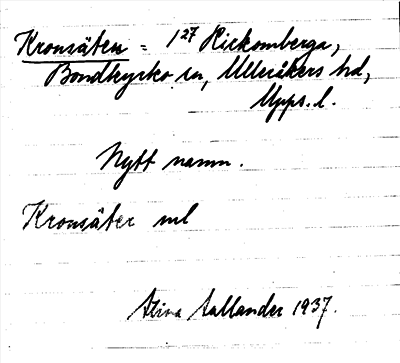 Kronsäten = 1²⁷ Rickomberga,
Bondkyrko sn, Ulleråkers hd,
Upps. l.
Nytt namn.
Kronsäter ml
Stina Sallander 1937.